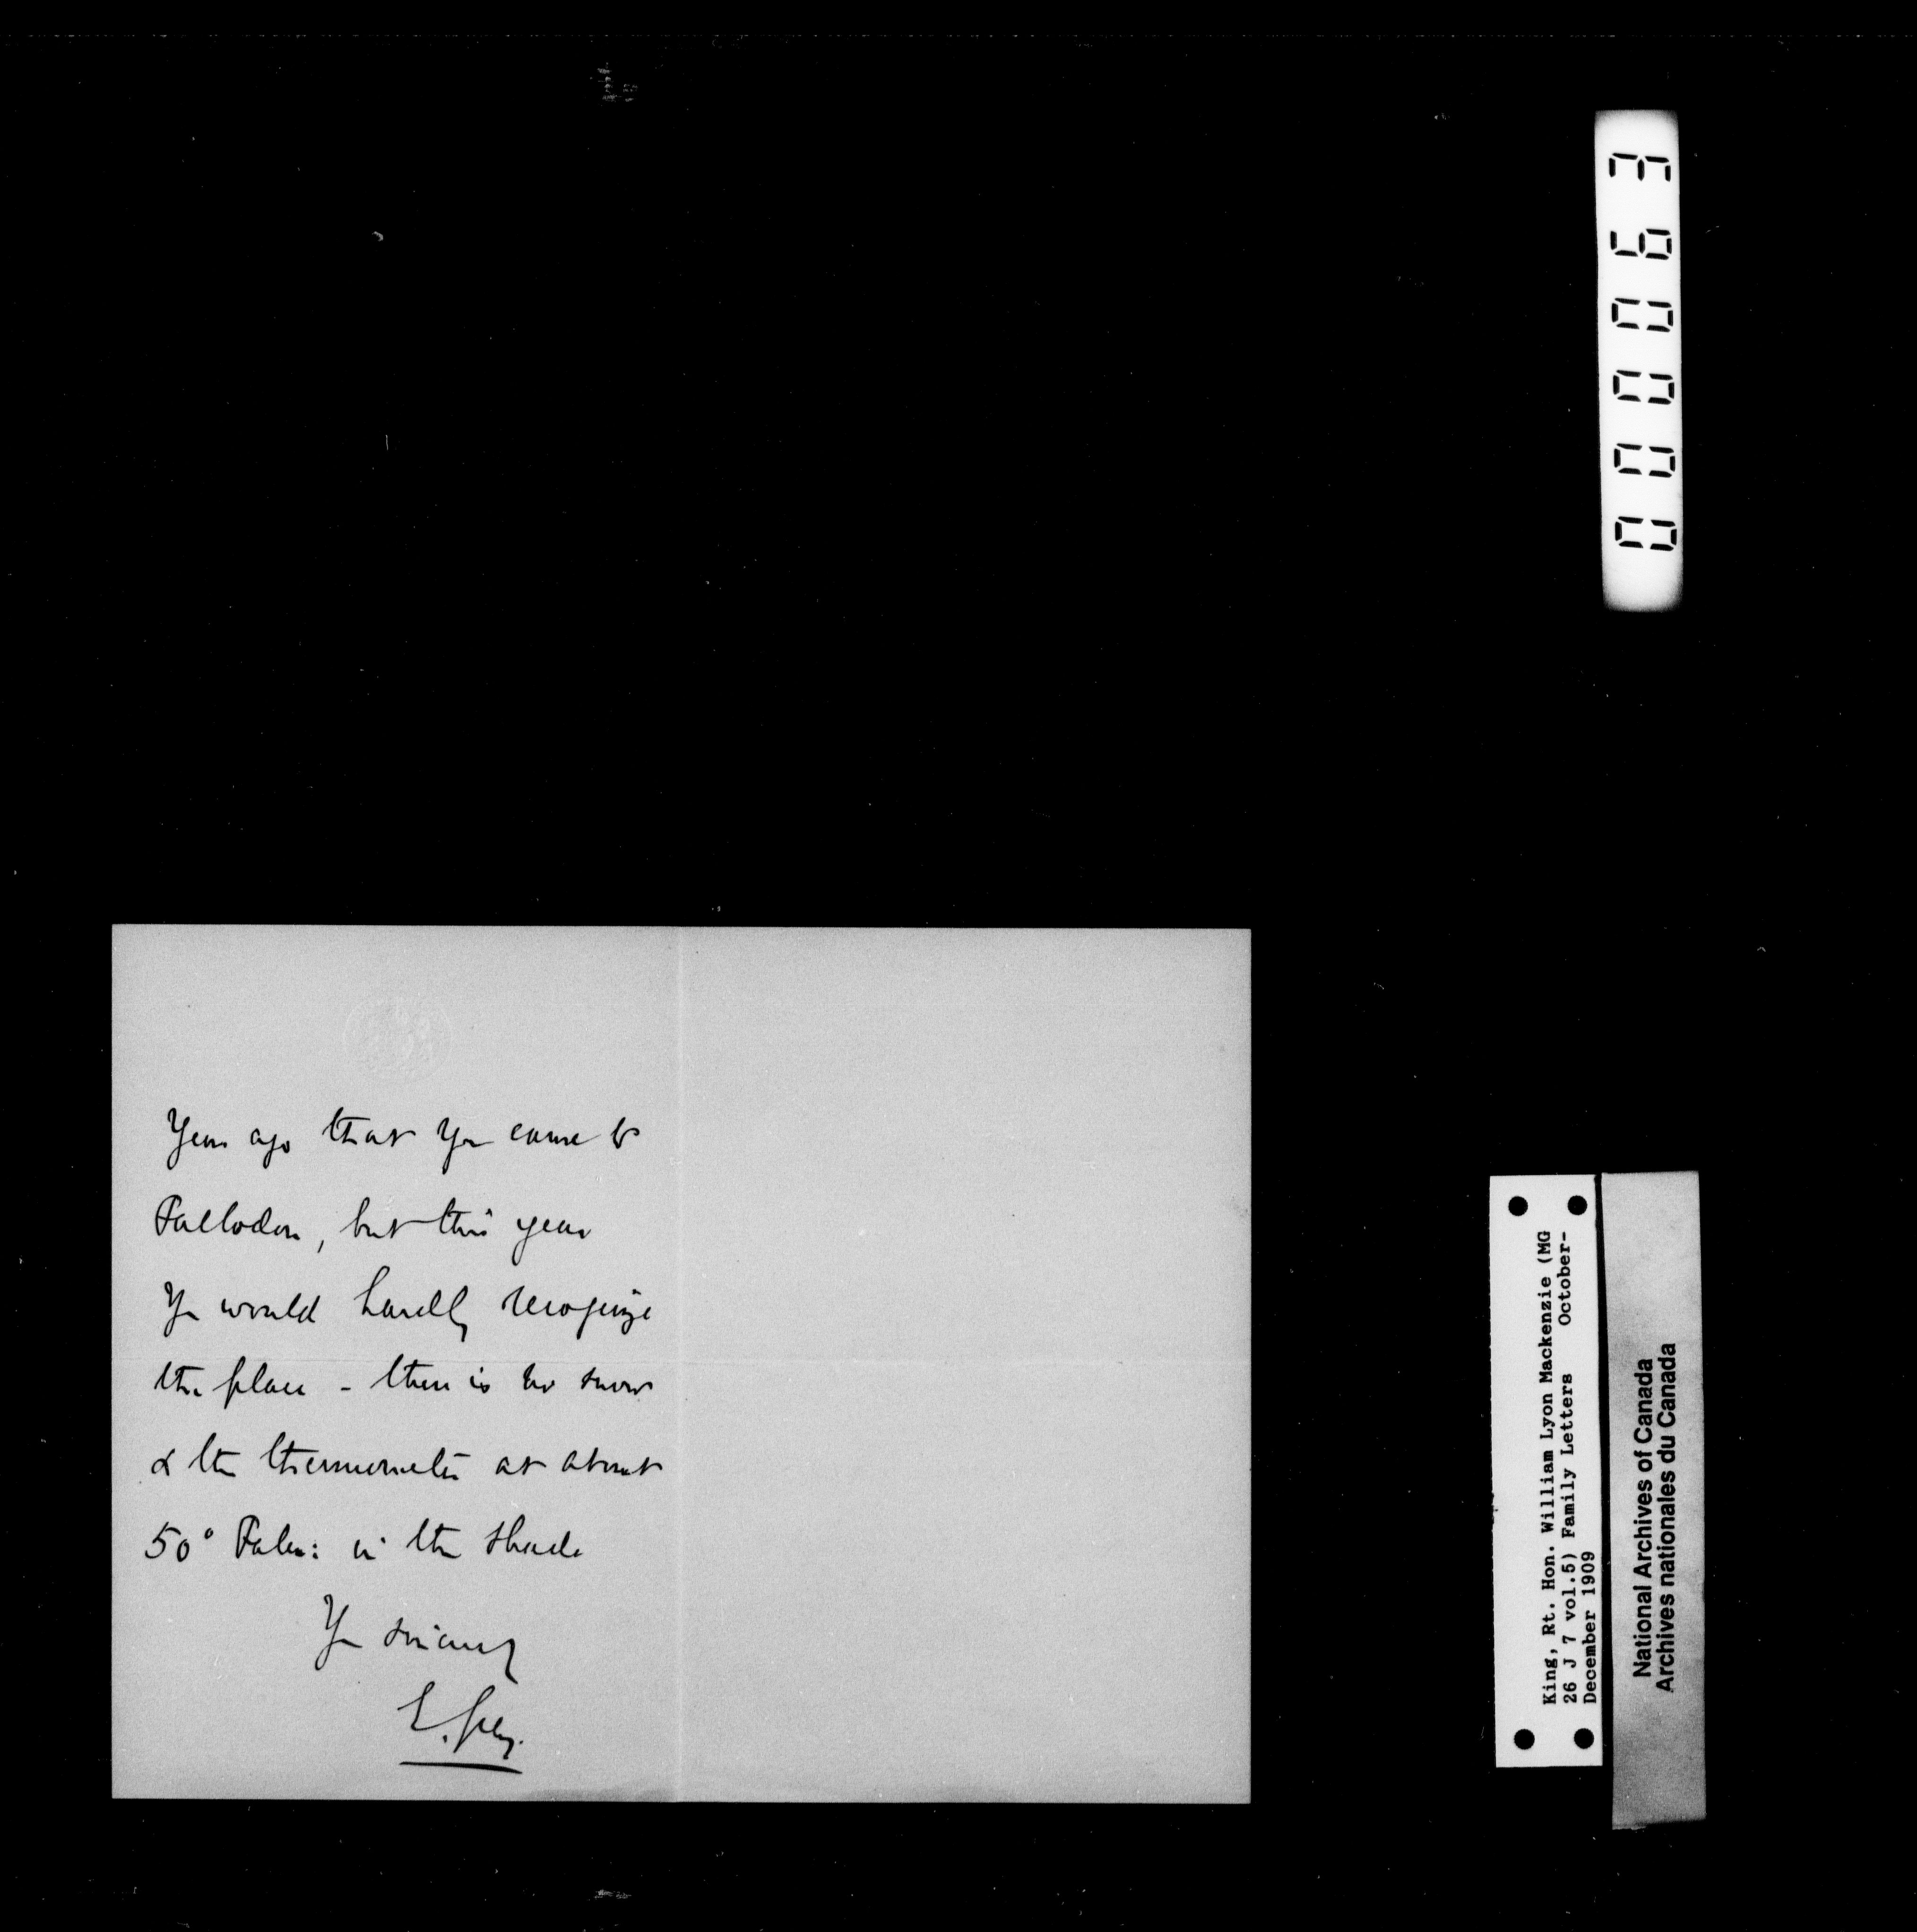 Years ago that you came to
Fallodon, but this year
you would hardly recognize
the place - there is no snow
& the thermometer at about
50° Fahr: in the shade
Yrs sincerely
E. Grey.
000063
King, Rt. Hon. William Lyon Mackenzie (MG
26 J 7 vol.5) Family Letters October-
December 1909
National Archives of Canada
Archives nationales du Canada